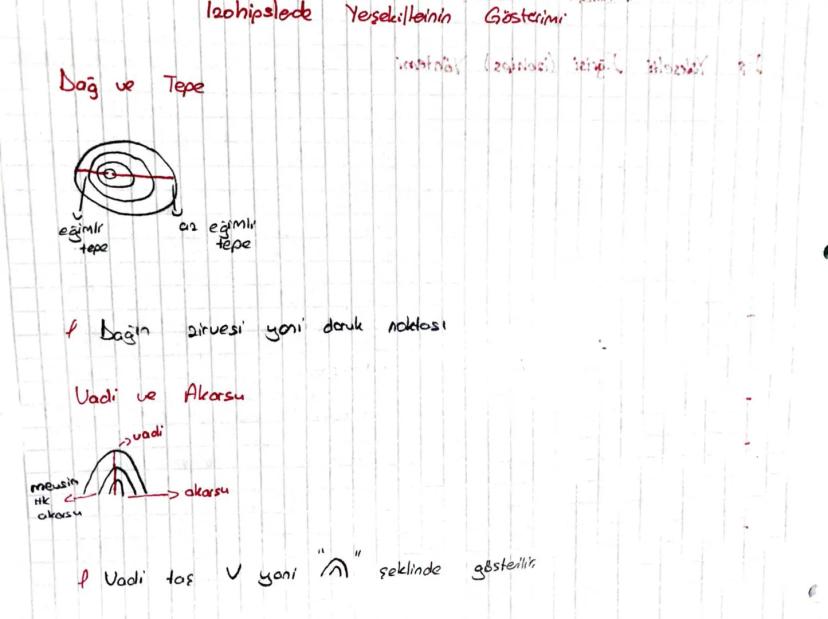 İzohipslerde Yerşekillerinin Gösterimi
Dağ ve Tepe
eğimli
tepe
az eğimli
tepe
Dağın zirvesi yani doruk noktası
Vadi ve Akarsu
vadi
mevsim
lik
akarsu
akarsu
Vadi taş V yani " " şeklinde gösterilir.